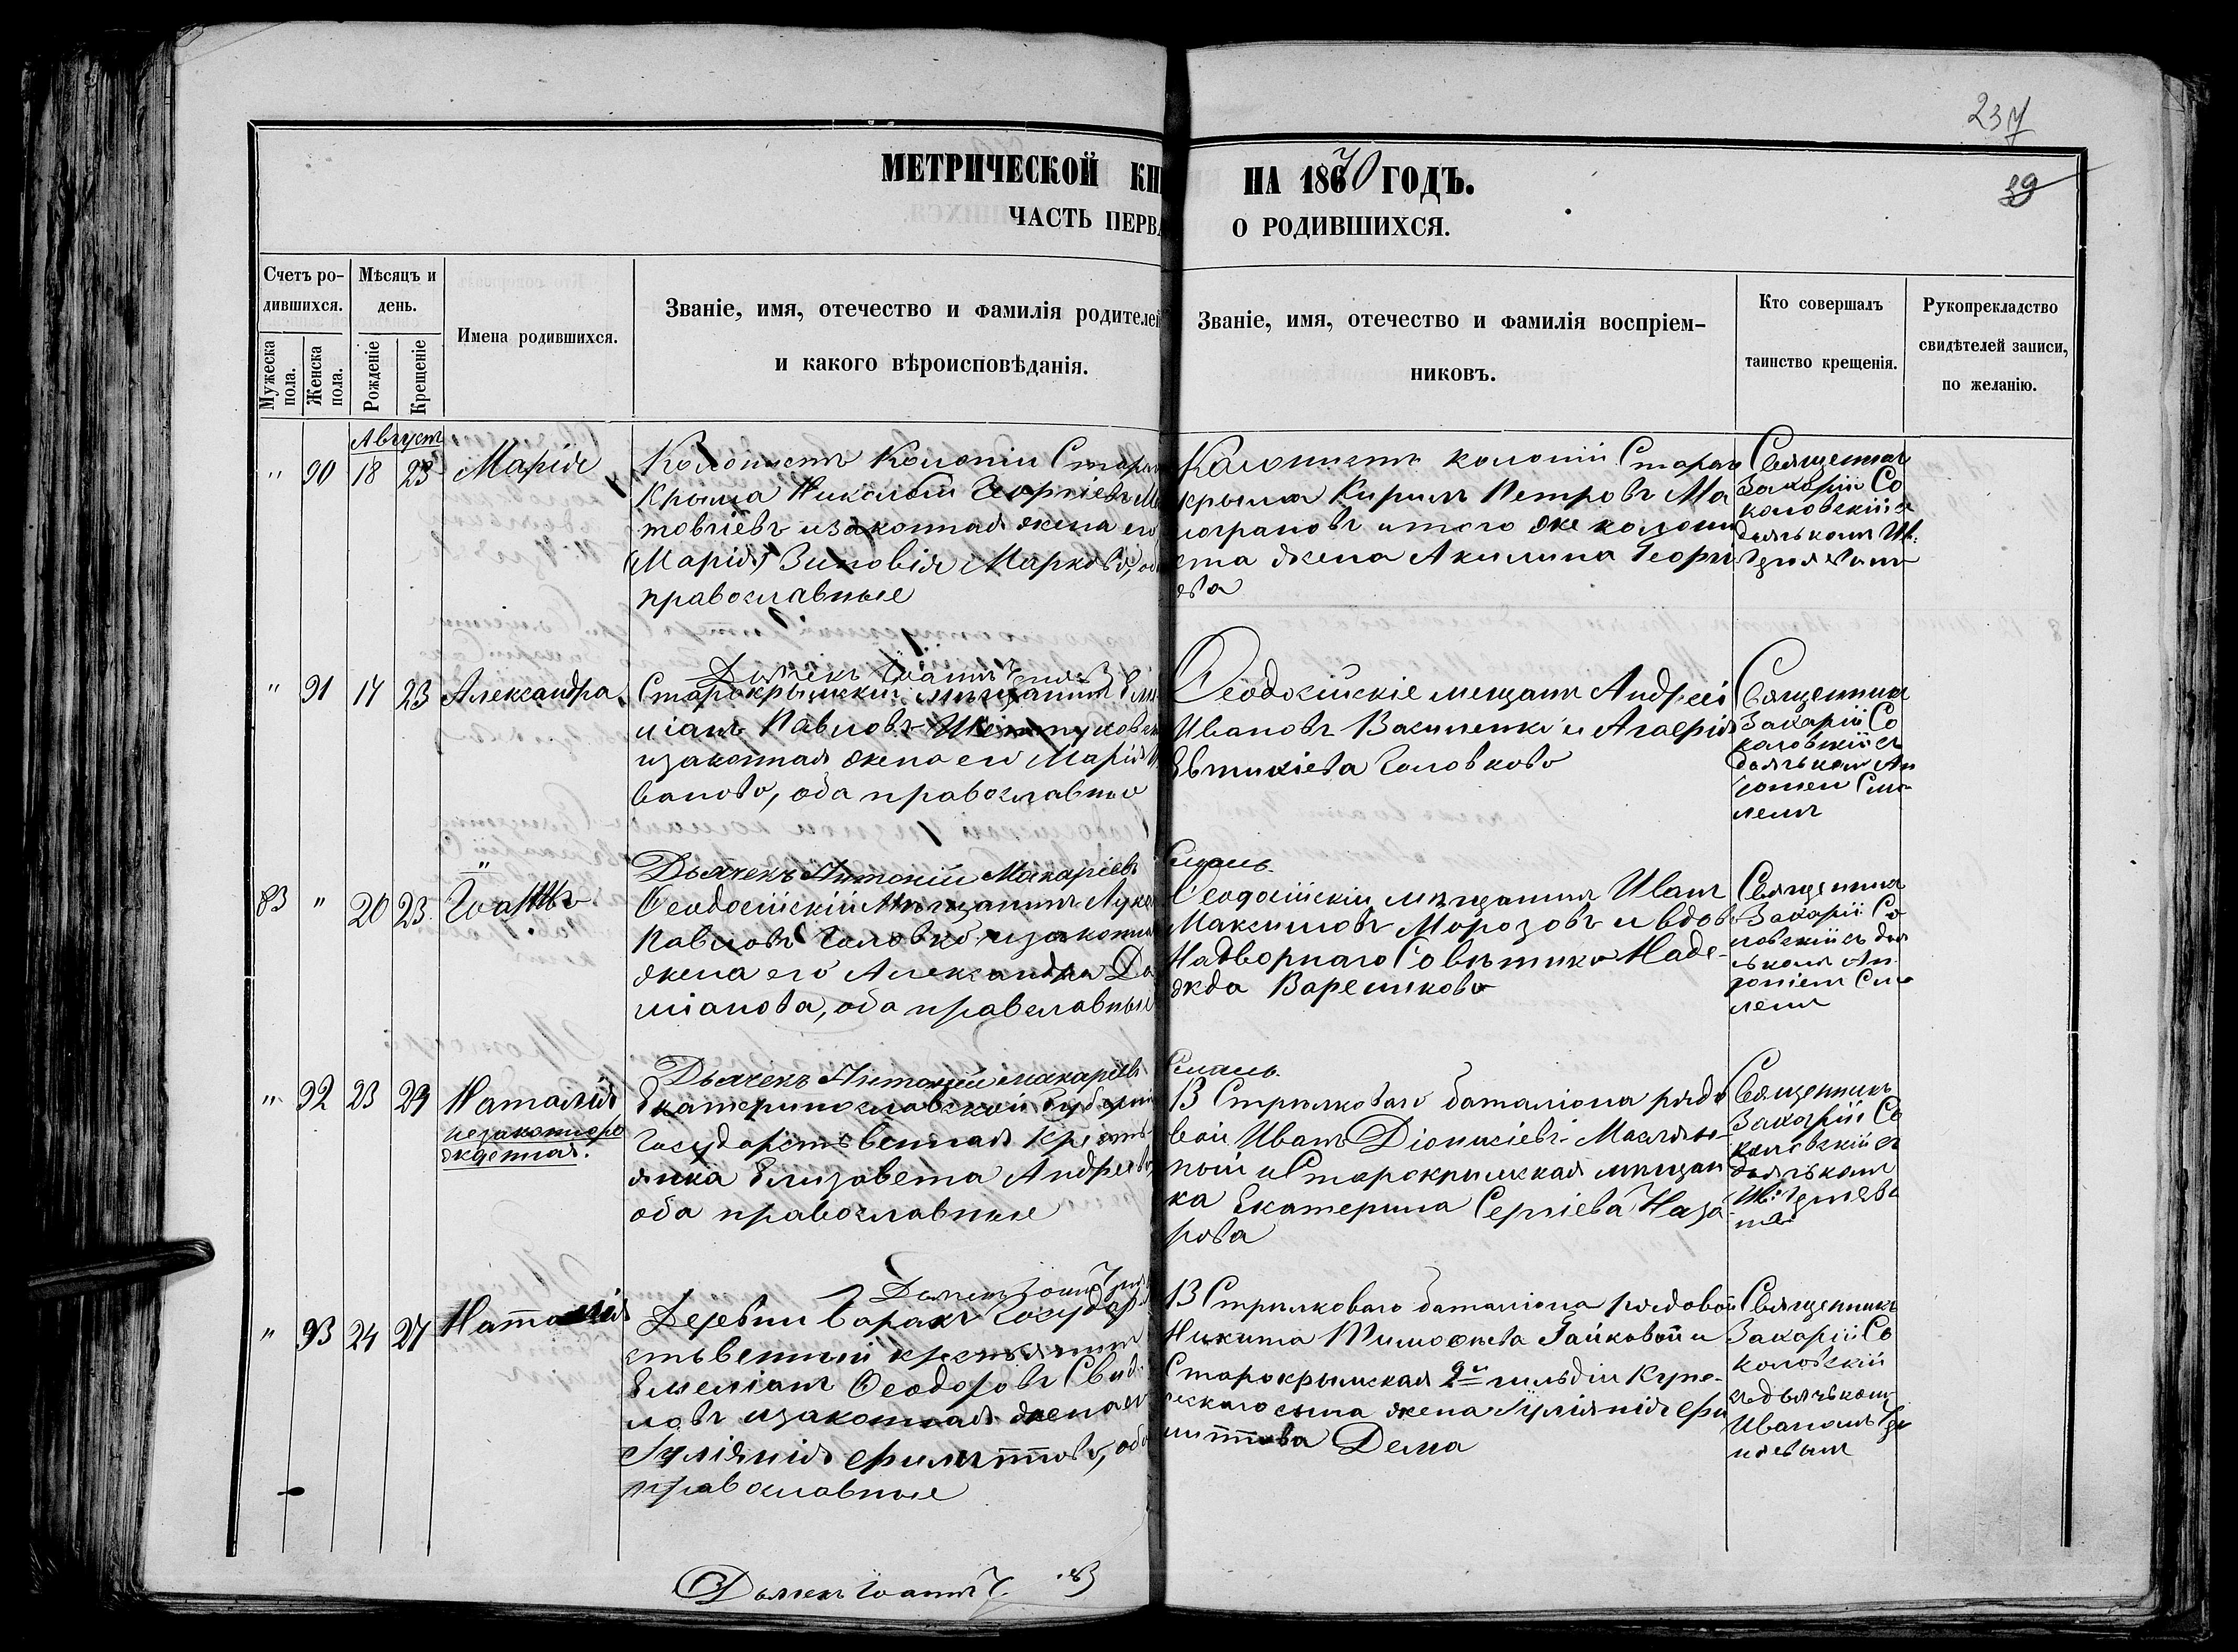 237
МЕТРИЧЕСКОЙ КН НА 1870 ГОДЪ.
39
ЧАСТЬ ПЕРВА О РОДИВШИХСЯ.
Счетъ ро-
дившихся.
Мужеска пола.
Женска пола.
Мѣсяцъ и
день.
Рожденіе
Крещеніе
Имена родившихся.
Званіе, имя, отечество и фамилія родителей
и какого вѣроисповѣданія.
Званіе, имя, отечество и фамилія воспріем-
никовъ.
Кто совершалъ
таинство крещенія.
Рукоприкладство
свидѣтелей записи,
по желанію.
Август
" 90 18 23 Марія
Колонистъ Колоніи Старый
Крыма Николай Георгіевъ
товчіевъ и законная жена его
(Марія) Зиновія Маркова,
православные
Колонистъ колоніи Старый
крыма Кирилъ Петровъ Ма
играновъ и того же колони
ста жена Акилина Георгі
ева
Священник
Захарій Со
коловскій съ
дьячькомъ Ив.
Дьячекъ Іоаннъ
" 91 17 23 Александра
Старокрымскій мѣщанинъ Еми
ліанъ Павловъ
и законная жена его Марія И
ванова, оба православные
Феодосійскіе мещане Андрей
Ивановъ Василенко и Агафія
Евтихіева Головкова
Священник
Захарій Со
коловскій съ
дьячькомъ Ан
тоніем Сма
лемъ
Дьячекъ Антоній Макаріевъ Смаль.
83 " 20 23 Іоаннъ
Феодосійскій Мѣщанинъ Лука
Павловъ Головко и законная
жена его Александра Да
міанова, оба православные
Феодосійскій мѣщанинъ Иван
Максимовъ Морозовъ и вдова
Надворнаго Совѣтника Наде-
жда Варешкова
Священник
Захарій Со
ловскій съ дья
чькомъ Ан
тоніем Сма
лемъ
Дьячекъ Антоній Макаріевъ Смаль.
" 92 23 24 Наталія
незаконноро
жденная.
Екатеринославской губерніи
Государственная Кресть-
янка Елизавета Андреева,
оба православные
13 Стрѣлковаго баталіона рядо
вой Иванъ Діонисіевъ Масляный
и Старокрымская мѣщан
ка Екатерина Сергіева Наза
рова
Священникъ
Захарій Со
коловскій съ
дьячькомъ
Дьячекъ Іоаннъ
" 93 24 27 Наталія
Деревни Баракъ Государ
ственный крестьянинъ
Емеліанъ Феодоровъ
и законная жена его
Іуліянія Филиппова, оба
православные
13 Стрѣлковаго баталіона рядовой
Никита Тимофѣева Гайковой и
Старокрымская 2й гильдіи Купе-
ческаго сына жена Іуліянія Фи
липпова Дема
Священникъ
Захарій Со
коловскій
съ дьячькомъ
Иваномъ
Дьячекъ Іоаннъ